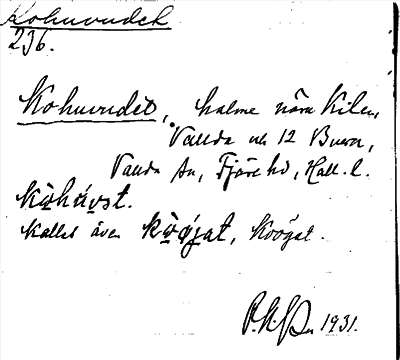 Kohuvudet
236.
Kohuvudet, holme nära Kilen,
Vallda nk 12 Buera,
Vallda sn, Fjäre hd, Hall. l.
kòhúvət.
Kallas även kòø̀gat, Koögat.
1931.